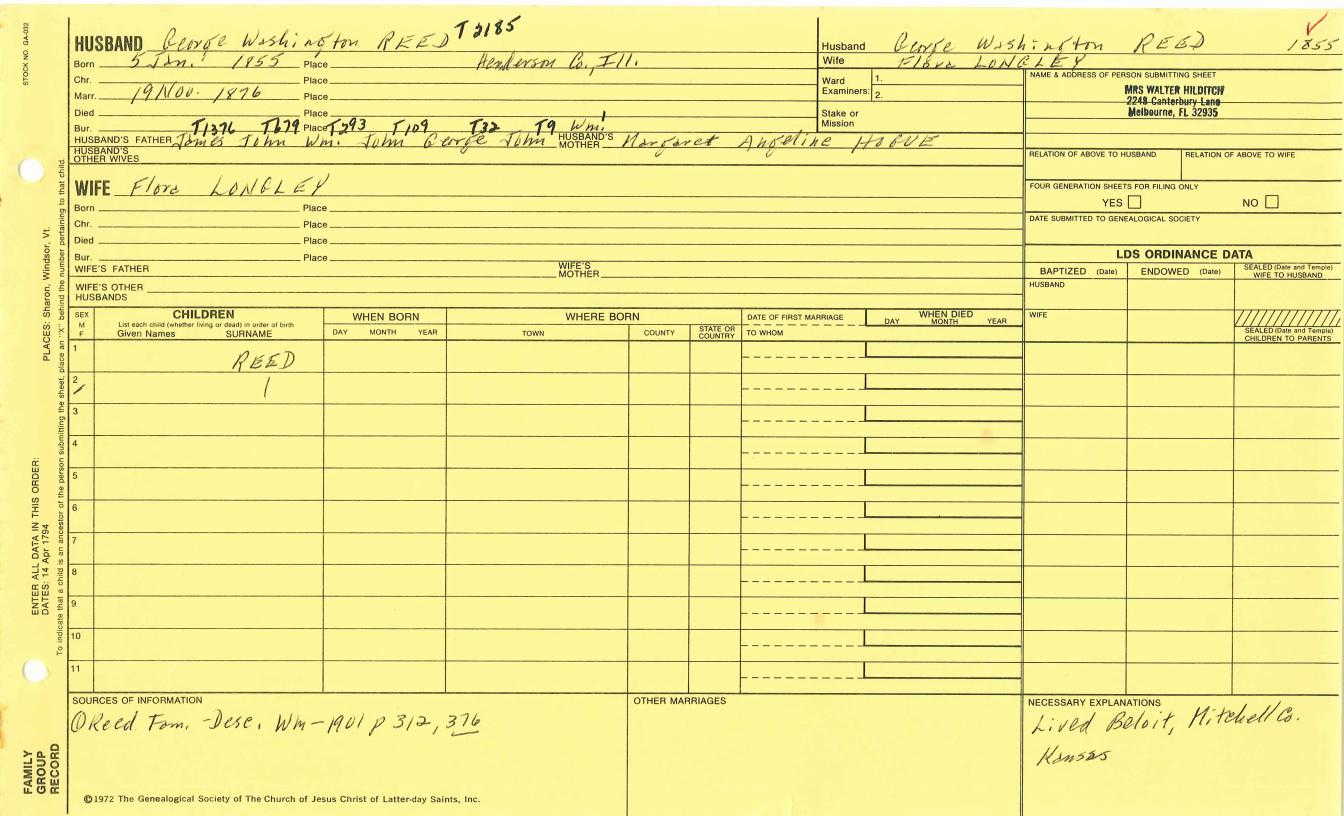 STOCK NO. GA-032
HUSBAND George Washington REED T2185
Born 5 Jan. 1855 Place Henderson Co., Ill.
Chr. Place
Marr. 19 Nov. 1876 Place
Died Place
Bur. Place
T1376 T679 T293 T109 T32 T9 Wm.1
HUSBAND'S FATHER James John Wm. John George John HUSBAND'S MOTHER Margaret Angeline HOGUE
HUSBAND'S OTHER WIVES
WIFE Flora LONGLEY
Born Place
Chr. Place
Died Place
Bur. Place
WIFE'S FATHER WIFE'S MOTHER
WIFE'S OTHER HUSBANDS
Husband George Washington REED 1855
Wife Flora LONGLEY
Ward Examiners: 1.
2.
Stake or Mission
NAME & ADDRESS OF PERSON SUBMITTING SHEET
MRS WALTER HILDITCH
2249 Canterbury Lane
Melbourne, FL 32935
RELATION OF ABOVE TO HUSBAND RELATION OF ABOVE TO WIFE
FOUR GENERATION SHEETS FOR FILING ONLY
YES NO
DATE SUBMITTED TO GENEALOGICAL SOCIETY
LDS ORDINANCE DATA
BAPTIZED (Date) ENDOWED (Date) SEALED (Date and Temple) WIFE TO HUSBAND
HUSBAND
WIFE
SEALED (Date and Temple) CHILDREN TO PARENTS
SEX M F
CHILDREN
List each child (whether living or dead) in order of birth
Given Names SURNAME
WHEN BORN
DAY MONTH YEAR
WHERE BORN
TOWN COUNTY STATE OR COUNTRY
DATE OF FIRST MARRIAGE
TO WHOM
WHEN DIED
DAY MONTH YEAR
1 REED
2
3
4
5
6
7
8
9
10
11
SOURCES OF INFORMATION
① Reed Fam. - Desc. Wm - 1901 p 312, 376
OTHER MARRIAGES
NECESSARY EXPLANATIONS
Lived Beloit, Mitchell Co.
Kansas
©1972 The Genealogical Society of The Church of Jesus Christ of Latter-day Saints, Inc.
FAMILY GROUP RECORD
ENTER ALL DATA IN THIS ORDER:
DATES: 14 Apr 1794
PLACES: Sharon, Windsor, Vt.
To indicate that a child is an ancestor of the person submitting the sheet, place an "X" behind the number pertaining to that child.